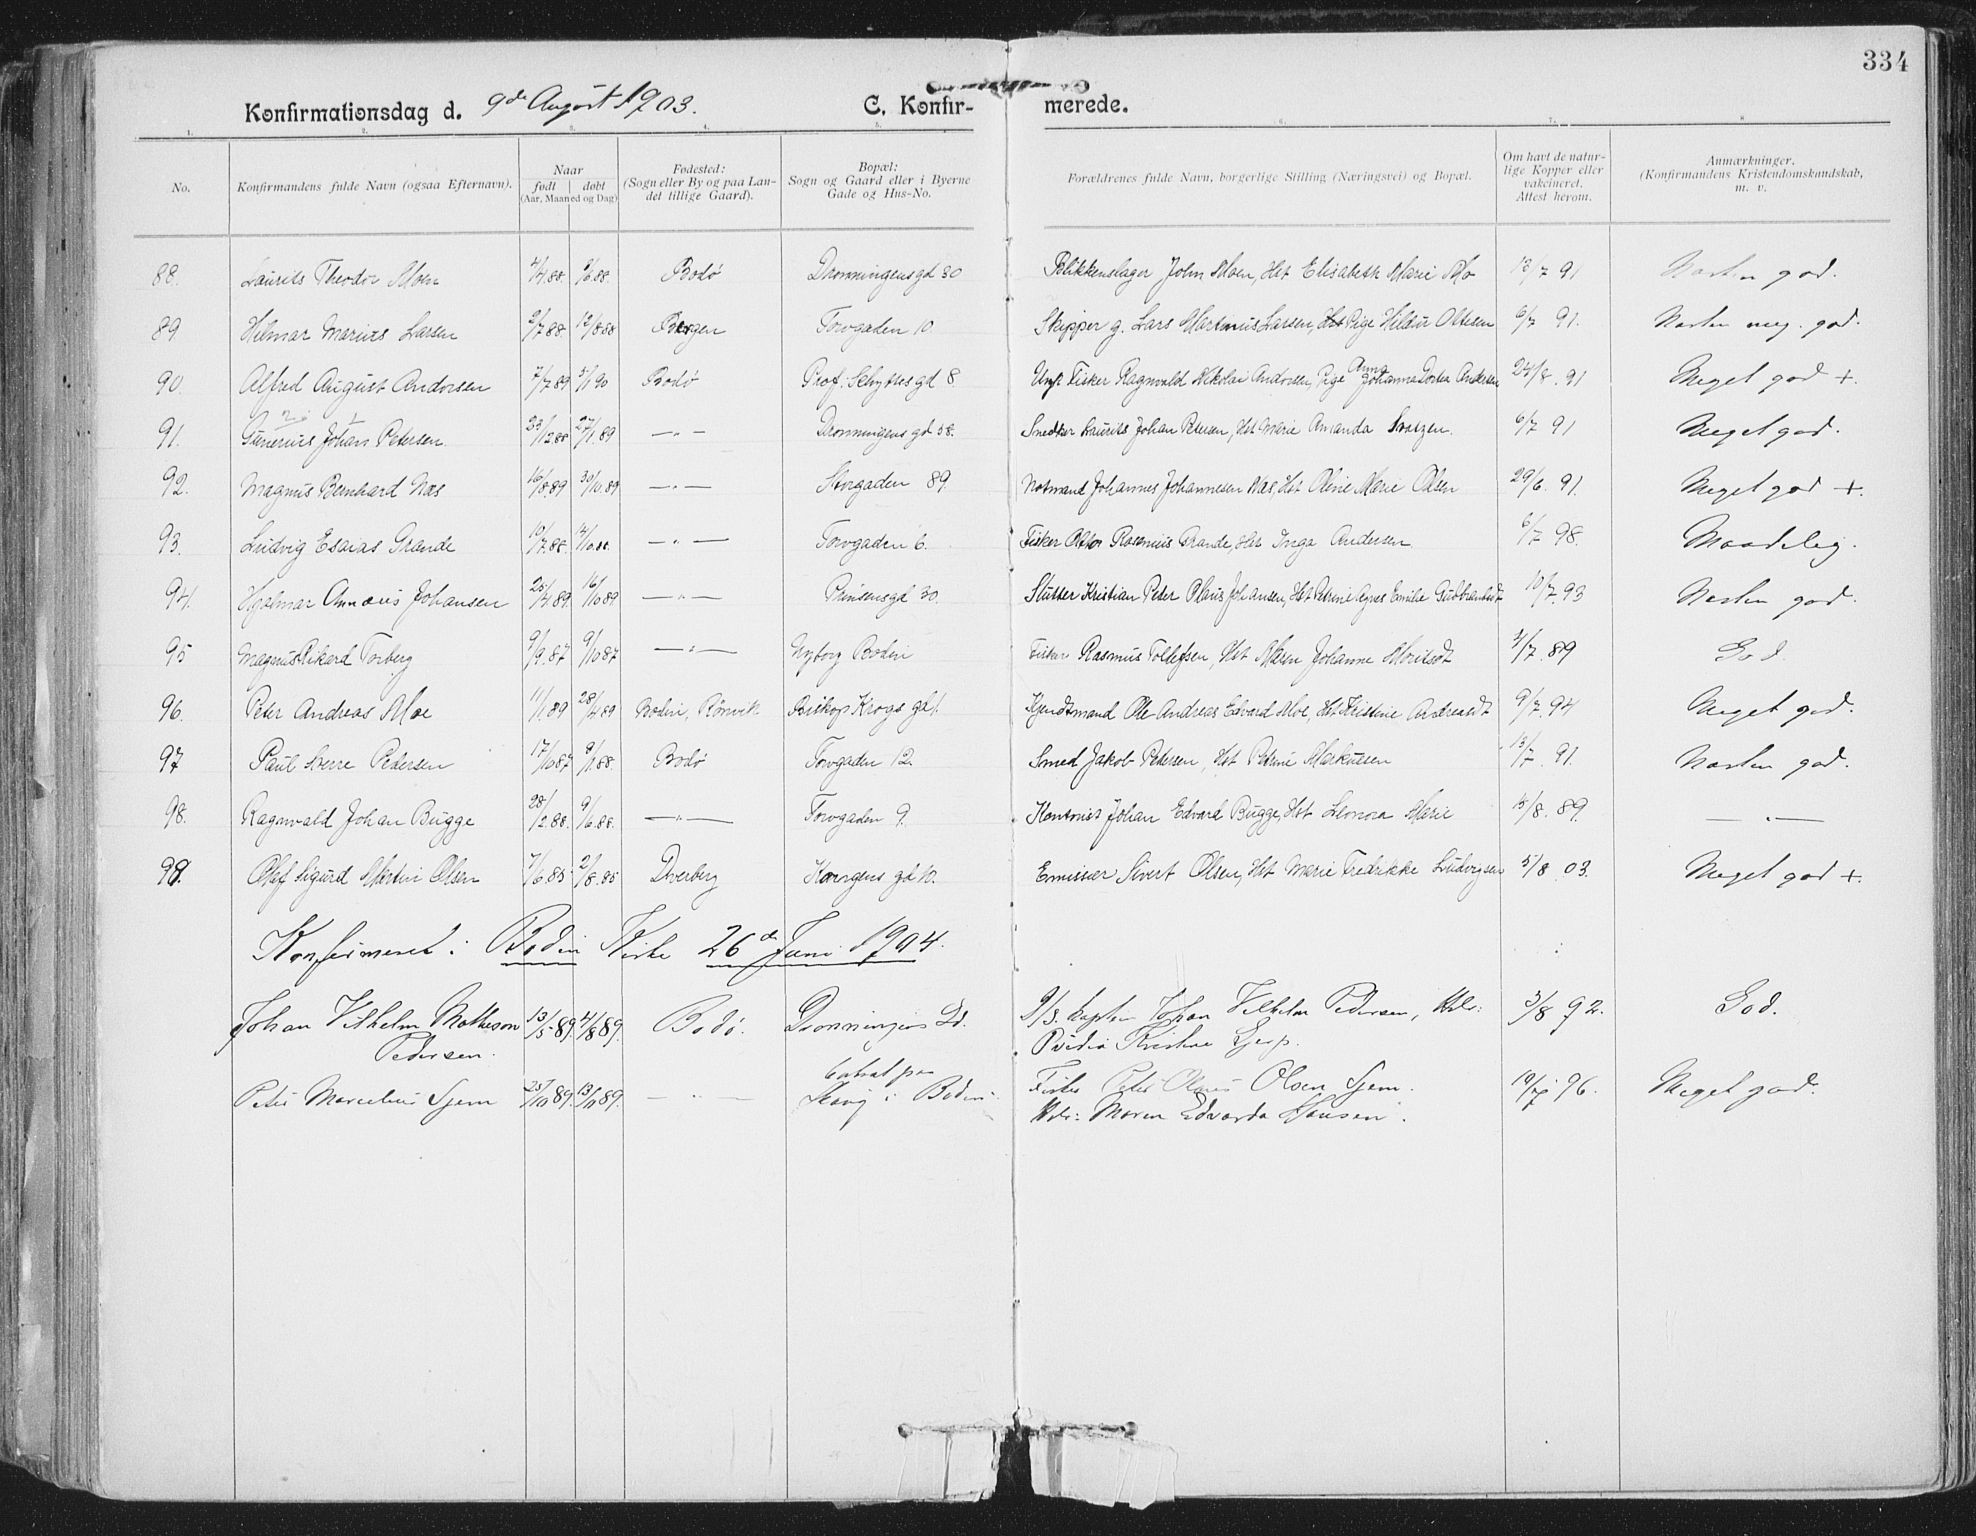 334
Konfirmationsdag d. 9de August 1903. C. Konfir- merede.
1. 2. 3. 4. 5. 6. 7. 8
No. Konfirmandens fulde Navn (ogsaa Efternavn). Naar født døbt (Aar, Maaned og Dag) Fødested: (Sogn eller By og paa Lan- det tillige Gaard). Bopæl: Sogn og Gaard eller i Byerne Gade og Hus-No. Forældrenes fulde Navn, borgerlige Stilling (Næringsvei) og Bopæl. Om havt de natur- lige Kopper eller vakcineret. Attest herom. Anmærkninger. (Konfirmandens Kristendomskundskab, m. v.
88. Laurits Theodor Moen 4/4 88. /6 88. Bodø Dronningensgd 30 Blikkenslager John Moen, Hst Elisabeth Marie Mo 13/7 91 Næsten god.
89 Hilmar Marius Larsen 2/7 88. 12/8 88 Bergen Torvgaden 10. Skipper g. Lars Martinus Larsen, Pige Hilda Ottesen 6/7 91. Næsten meg. god.
90. Alfred August Andorsen 7/7 89 5/1 90 Bodø Prof. Schyttesgd 8. Ungk Fisker Ragnvald Nikolai Andorsen, Pige Anna Johanna Dortea Andersen 24/8. 91 Meget god +.
91. Gunerius Johan Petersen 23/12 88 27/1 89 — " — Dronningensgd 58. Snedker Laurits Johan Petersen, Hst Marie Amanda 6/7 91 Meget god.
92. Magnus Bernhard Næs 16/8 89 30/10 89 — " — Storgaden 89. Notmand Johannes Johannesen Næs, Hst Oline Marie Olsen 29/6. 91. Meget god +.
93. Ludvig Esaias Grande 10/7 88. 14/10 88. — " — Torvgaden 6. Fisker Rasmus Grande, Hst Inga Andersen 6/7 98. Maadelig.
94. Hjalmar Annæus Johansen 25/4 89. 16/10 89. — " — Prinsensgd 30. Slutter Kristian Peter Olaus Johansen, Hst Petrine Agnes Emilie Gudbrandsdt 10/7. 93 Næsten god.
95 Magnus Rikard Torberg 9/9. 87 9/10 87 — " — Nyborg Bodin Fisker Rasmus Tollefsen, Hst Maren Johanne Moritsdt /7. 89 God.
96. Peter Andreas Moe 11/1 89 28/4 89 Bodin, Rønvik Biskop Krogs gd 1. Kjendtmand Ole Andreas Edvard Moe, Hst Kristine Andreasdt 9/7. 94 Meget god.
97 Paul Sverre Pedersen 17/10 87 8/1 88. Bodø Torvgaden 12. Smed Jakob Petersen, Hst Petrine Markussen 13/7. 91. Næsten god.
98. Ragnvald Johan Bugge 28/2 88. 9/6. 88. — " — Torvgaden 9. Kontorist Johan Edvard Bugge, Hst Leonora Marie 15/8. 89. — " —
99. Olaf Sigurd Martin Olsen 7/6 85 2/8. 85 Dverberg Kongens gd 10. Emissær Sivert Olsen, Hst Marie Fredrikke Ludvigsen 5/8 03. Meget god +.
Konfirmeret i Bodin Kirke 26de Juni 1904.
Johan Vilhelm Matheson 13/5 89. 4/8 89. Bodø. Dronningens Gd. D/S. kaptein Johan Vilhelm Pedersen, Hstr: 3/8 92. God.
Pedersen. Kristine
Peter Marcelius Sjem 25/10 89. 13/11 89. — " — i Bodin. Fisker Peter Olaus Olsen Sjem. 10/7 96. Meget god.
Hstr: Maren Edvarda Hansen.